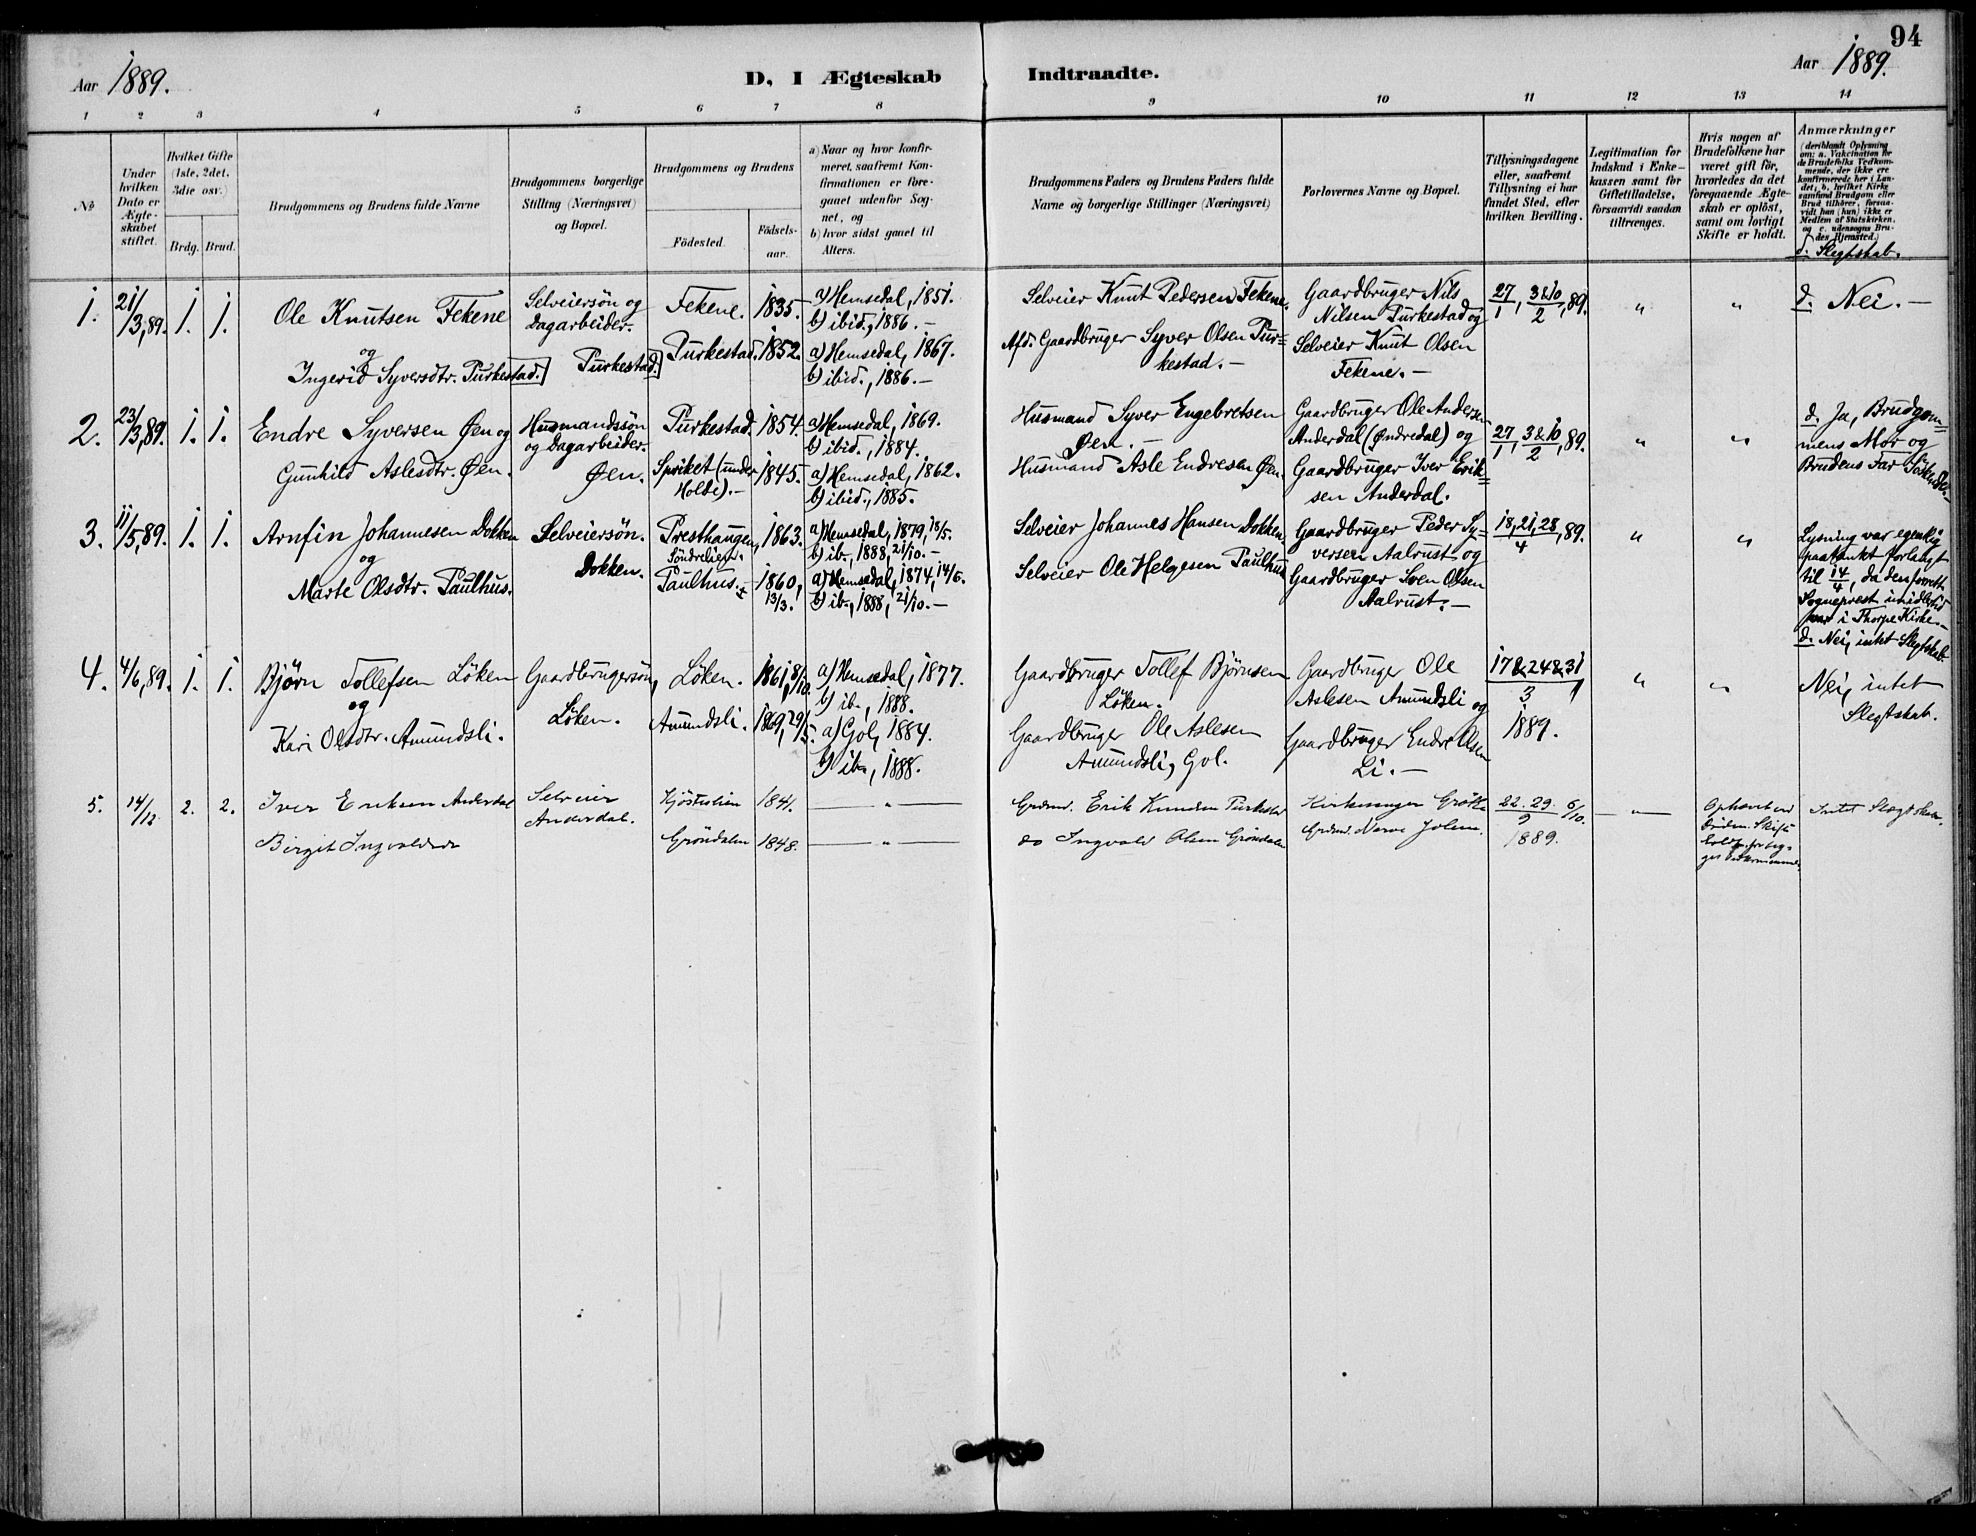 94
Aar 1889.
D, I Ægteskab Indtraadte.
Aar 1889.
1 2 3 4 5 6 7 8 9 10 11 12 13 14
№
Under hvilken Dato er Ægteskabet stiftet.
Hvilket Gifte (1ste, 2det, 3die osv.)
Brdg. Brud.
Brudgommens og Brudens fulde Navne
Brudgommens borgerlige Stilling (Næringsvei) og Bopæl.
Brudgommens og Brudens
Födested.
Födsels-aar.
a) Naar og hvor konfir-
meret, saafremt Kon-
firmationen er fore-
gaaet udenfor Sog-
net, og
b) hvor sidst gaaet til
Alters.
Brudgommens Faders og Brudens Faders fulde
Navne og borgerlige Stillinger (Næringsvei)
Forlovernes Navne og Bopæl.
Tillysningsdagene
eller, saafremt
Tillysning ei har
fundet Sted, efter
hvilken Bevilling.
Legitimation for
Indskud i Enke-
kassen samt for
Giftetilladelse,
forsaavidt saadan
tiltrænges.
Hvis nogen af
Brudefolkene har
været gift för,
hvorledes da det
foregaaende Ægte-
skab er oplöst,
samt om lovligt
Skifte er holdt.
Anmærkninger
(deriblandt Oplysning
om: a. Vakcination for
de Brudefolks Vedkom-
mende, der ikke ere
konfirmerede her i Lan-
det; b. hvilket Kirke-
samfund Brudgom eller
Brud tilhörer, forsaa-
vidt han (hun) ikke er
Medlem af Statskirken,
og c. udensogns Bru-
des Hjemsted.)
d. Slegtskab.
1. 21/3,89. 1. 1. Ole Knutsen Fekene
og
Ingerid Syversdtr. Purkestad.
Selveiersön og
Dagarbeider.
Purkestad.
Fekene. 1835.
Purkestad. 1852.
a) Hemsedal, 1851.
b) ibid., 1886. –
a) Hemsedal, 1867.
b) ibid., 1886. –
Selveier Knut Pedersen Fekene.
Afd. Gaardbruger Syver Olsen Pur=
kestad. –
Gaardbruger Nils
Nilsen Purkestad og
Selveier Knut Olsen
Fekene. –
27/1, 3&10/2, 89. " " d. Nei. –
2. 23/3,89. 1. 1. Endre Syversen Øen og
Gunhild Aslesdtr. Øen.
Husmandssön
og Dagarbeider.
Øen.
Purkestad. 1854.
Spriket (under
Holde). – 1845.
a) Hemsedal, 1869.
b) ibid., 1884.
a) Hemsedal, 1862.
b) ibid., 1885.
Husmand Syver Engebretsen
Øen. –
Husmand Asle Endresen Øen.
Gaardbruger Ole Anderse
Anderdal (Øndredal) og
Gaardbruger Iver Erik=
sen Anderdal.
27/1, 3&10/2, 89. " "
d. Ja, Brudgom=
mens Mor og
Brudens Far Söskende. –
3. 11/5,89. 1. 1. Arnfin Johannesen Dokken
og
Marte Olsdtr. Paulhus.
Selveiersön.
Dokken.
Presthaugen, 1863.
Söndrelien.
Paulhus. 1860, 13/3.
a) Hemsedal, 1879, 18/5.
b) ib., 1888, 21/10. –
a) Hemsedal, 1874, 14/6.
b) ib., 1888, 21/10. –
Selveier Johannes Hansen Dokken.
Selveier Ole Helgesen Paulhus
Gaardbruger Peder Sy=
versen Aalrust og
Gaardbruger Sven Olsen
Aalrust. –
18, 21, 28/4, 89. " "
Lysning var egenlig
paatænkt forlangt
til 14/4, da den forrett.
Sogneprest imidlertid
var i Thorpe Kirke. –
d. Nei, intet Slegtskab.
4. 4/6,89. 1. 1. Bjørn Tollefsen Löken
og
Kari Olsdtr. Amundsli.
Gaardbrugersön,
Löken.
Löken. 1861, 8/10.
Amundsli. 1869, 29/5.
a) Hemsedal, 1877.
b) ib., 1888.
a) Gol, 1884.
b) ib., 1888.
Gaardbruger Tollef Bjørnsen
Löken.
Gaardbruger Ole Aslesen
Amundsli, Gol.
Gaardbruger Ole
Aslesen Amundsli og
Gaardbruger Endre Olsen
Li. –
17&24&31/3 1889. " "
Nei, intet
Slegtskab.
5. 14/12 2. 2. Iver Eriksen Anderdal
Birgit Ingvaldsdr
Selveier
Anderdal.
1841.
Gröndalen 1848.
— " —
— " —
Grdmd. Erik Knudsen Purkestad
do Ingvald Olsen Gröndalen
22. 29./9 6/10 1889. — " —
Intet Slægtskab.